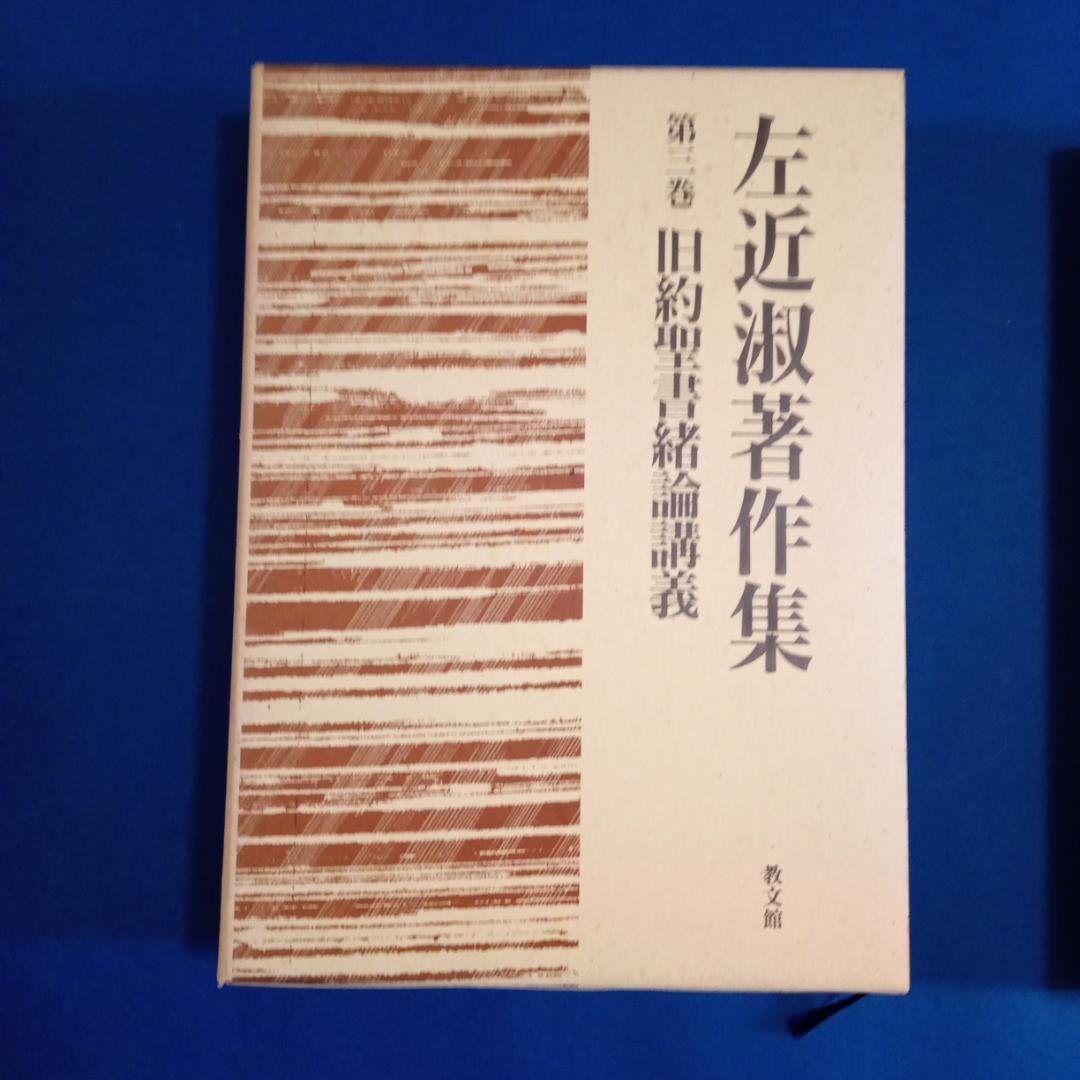 左近淑著作集
第三巻 旧約聖書緒論講義
教文館